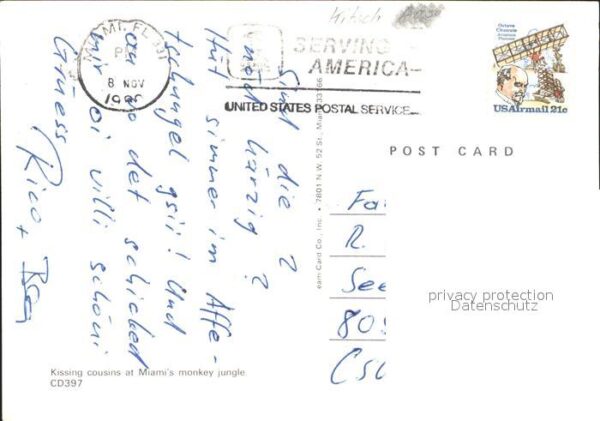 Kitsch
MIAMI, FL 331
PM
8 NOV
SERVING
AMERICA
UNITED STATES POSTAL SERVICE
Octave
Chanute
Aviation
Pioneer
USAirmail 21c
POST CARD
Sind die 2
nöd härzig?
Hüt simmer im Affe-
tschungel gsii! Und
vo det schicked
mir ei villi schöni
Grüess
Rico +
Fa
R.
See
80
privacy protection
Datenschutz
eam Card Co., Inc. • 7801 N.W. 52 St., Miami 33166
Kissing cousins at Miami's monkey jungle.
CD397